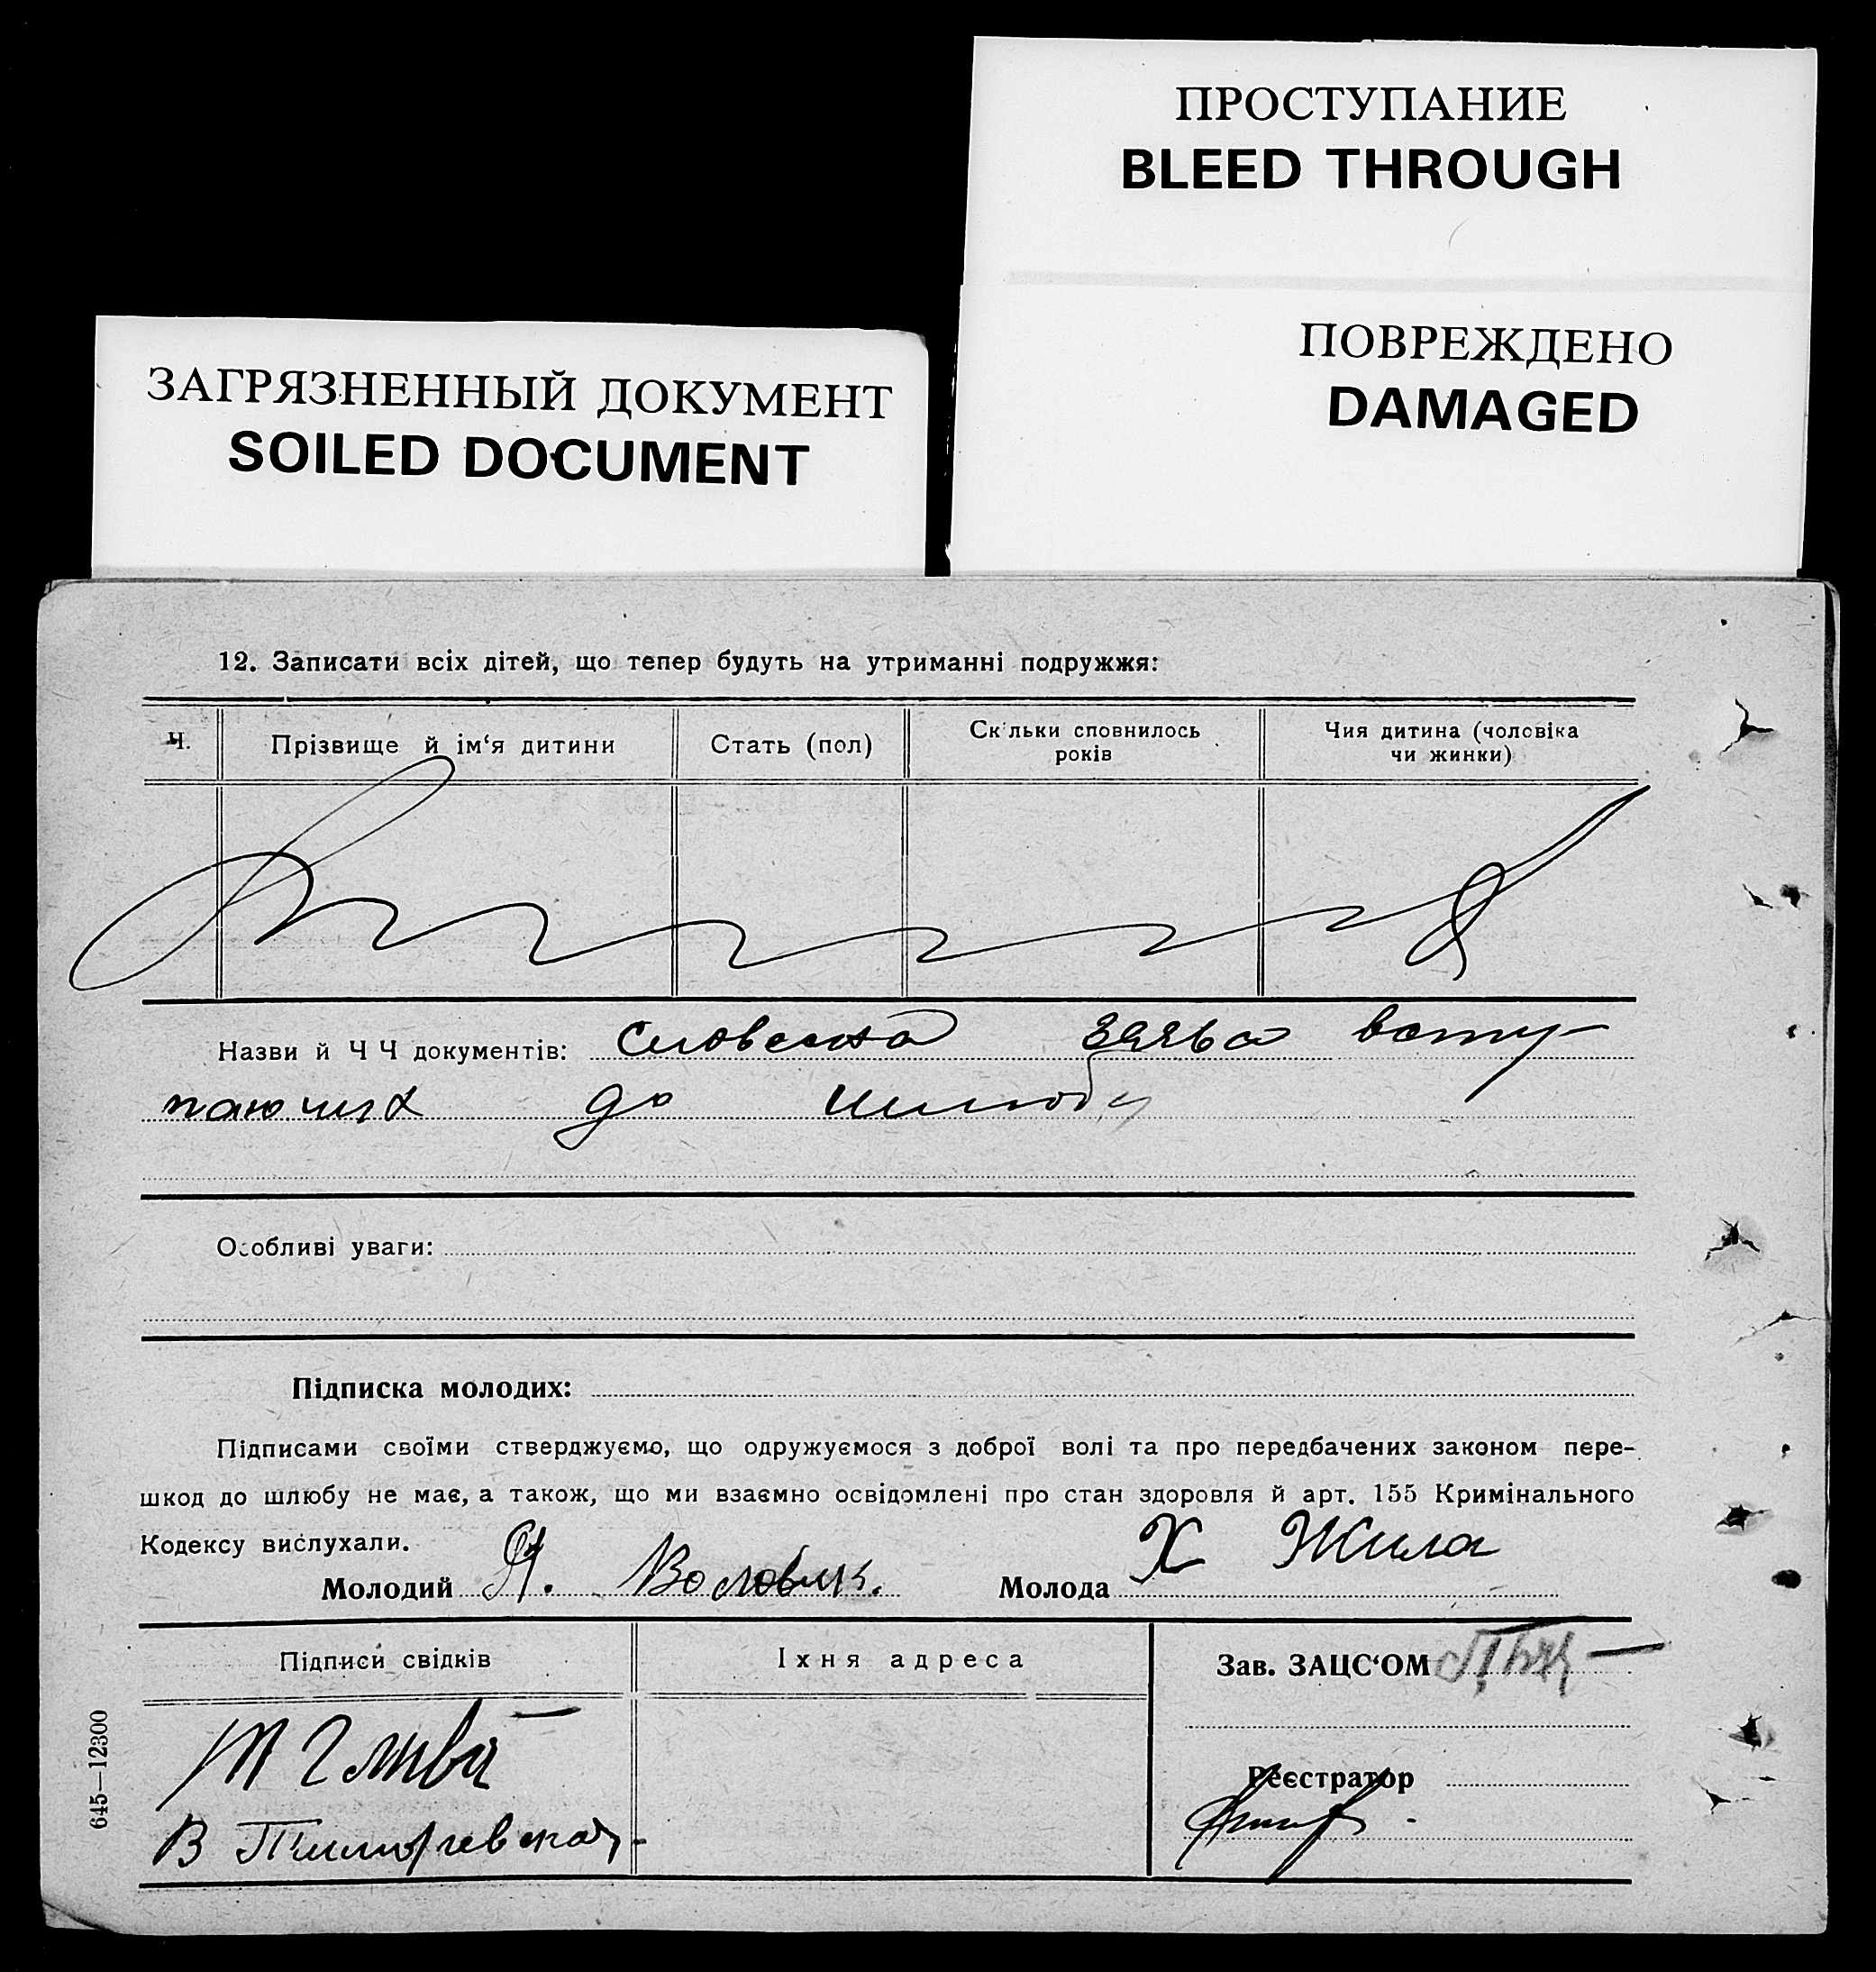 ПРОСТУПАНИЕ
BLEED THROUGH
ПОВРЕЖДЕНО
DAMAGED
ЗАГРЯЗНЕННЫЙ ДОКУМЕНТ
SOILED DOCUMENT
12. Записати всіх дітей, що тепер будуть на утриманні подружжя:
Ч. Прізвище й ім‘я дитини Стать (пол) Скільки сповнилось років Чия дитина (чоловіка чи жинки)
Назви й Ч Ч документів: Словесна заява всту-
паючих до шлюбу
Особливі уваги:
Підписка молодих:
Підписами своїми стверджуємо, що одружуємося з доброї волі та про передбачених законом пере-
шкод до шлюбу не має, а також, що ми взаємно освідомлені про стан здоровля й арт. 155 Кримінального
Кодексу вислухали.
Молодий Я. Воловик. Молода Х Жила
Підписи свідків Їхня адреса Зав. ЗАЦС‘ОМ
Реєстратор
В
645—12300